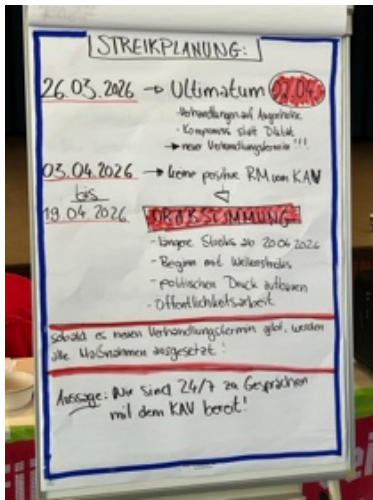 STREIKPLANUNG:
26.03.2026 → Ultimatum 02.04
- Verhandlungen auf Augenhöhe
- Kompromiss statt Diktat
→ neuer Verhandlungstermin!!!
03.04.2026 → keine positive RM vom KAV
bis
19.04.2026
URABSTIMMUNG
- längere Streiks ab 20.04.2026
- Beginn mit Wellenstreiks
- politischen Druck aufbauen
- Öffentlichkeitsarbeit
sobald es neuen Verhandlungstermin gibt, werden
alle Maßnahmen ausgesetzt!
Aussage: Wir sind 24/7 zu Gesprächen
mit dem KAV bereit!